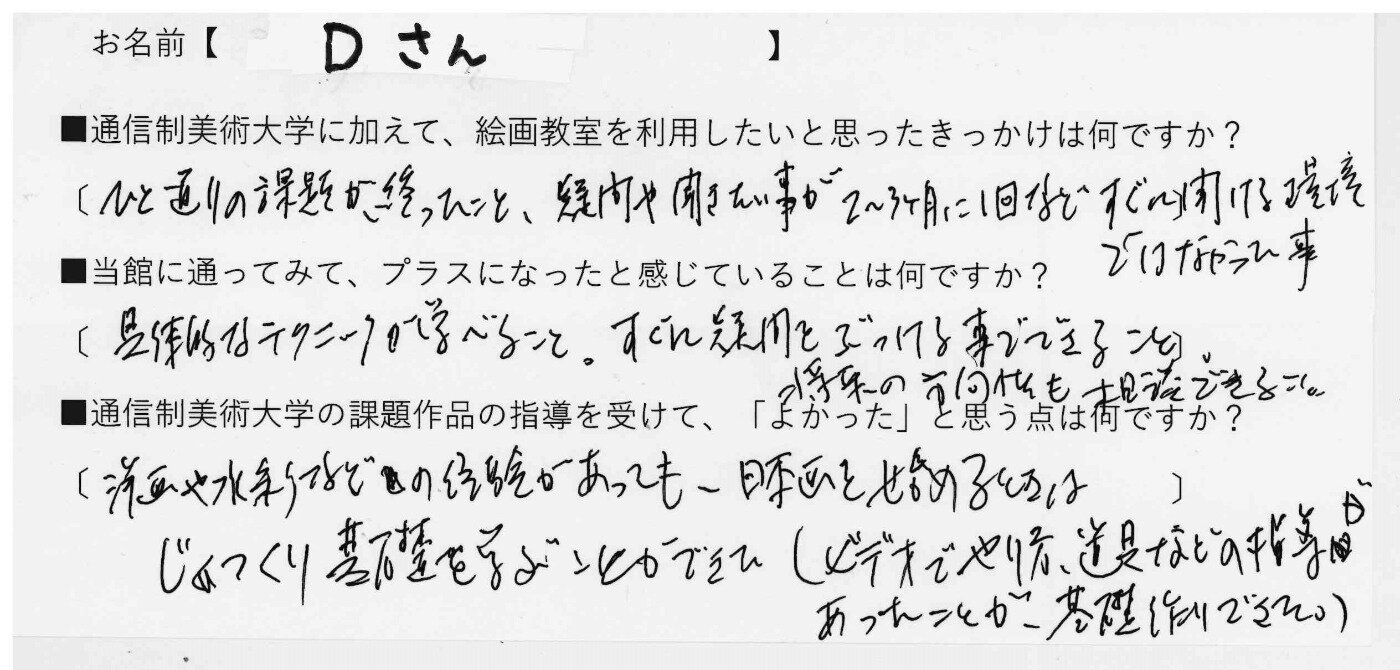 お名前【 Dさん 】
■通信制美術大学に加えて、絵画教室を利用したいと思ったきっかけは何ですか？
〔ひと通りの課題が、終ったこと、疑問や聞きたい事が2~3ヶ月に1回など すぐに聞ける環境
ではなかった事
■当館に通ってみて、プラスになったと感じていることは何ですか？
〔具体的なテクニックが学べること。すぐに疑問をぶつける事ができること〕
将来の方向性も相談できること。
■通信制美術大学の課題作品の指導を受けて、「よかった」と思う点は何ですか？
〔洋画や水彩などの経験があっても、日本画を始める には 〕
じっくり基礎を学ぶことができた（ビデオでやり方、道具などの指導が
あったことが、基礎作りできた。）